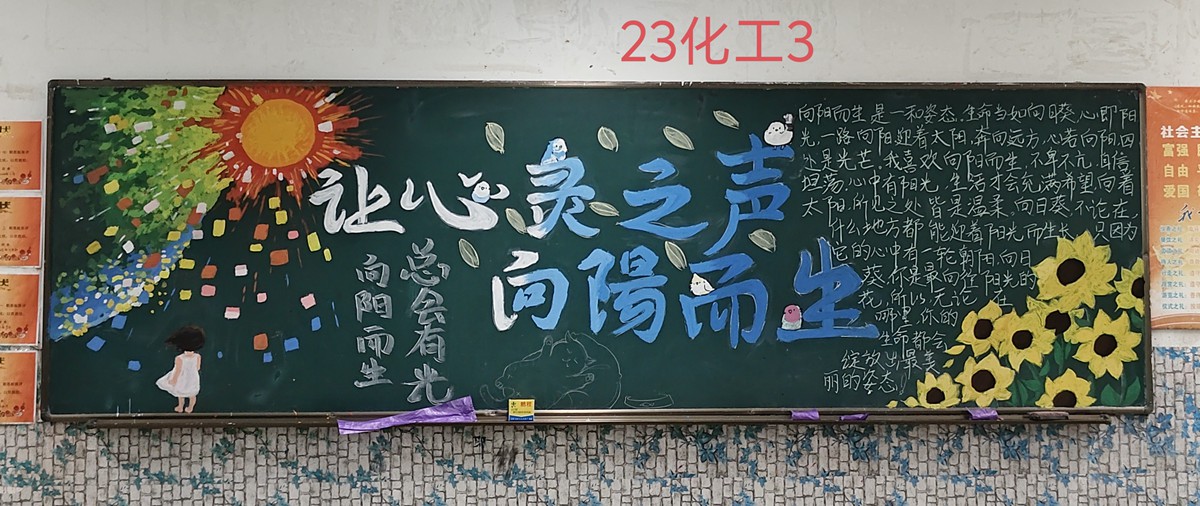 23化工3
让心灵之声
向陽而生
总会有光
向阳而生
向阳而生是一种姿态,生命当如向日葵,心即阳
光,一路向阳迎着太阳,奔向远方,心若向阳,四
处是光芒,我喜欢向阳而生,不卑不亢,自信
坦荡,心中有阳光,生活才会充满希望向着
太阳,所见之处皆是温柔。向日葵,不论在,
什么地方都能迎着阳光而生长,只因为
它的心中有一轮朝阳,向日
葵,你是最向往阳光的
花,所以,无论在
哪里,你的
生命都会
绽放出最美
丽的姿态!
社会主
富强
自由
爱国